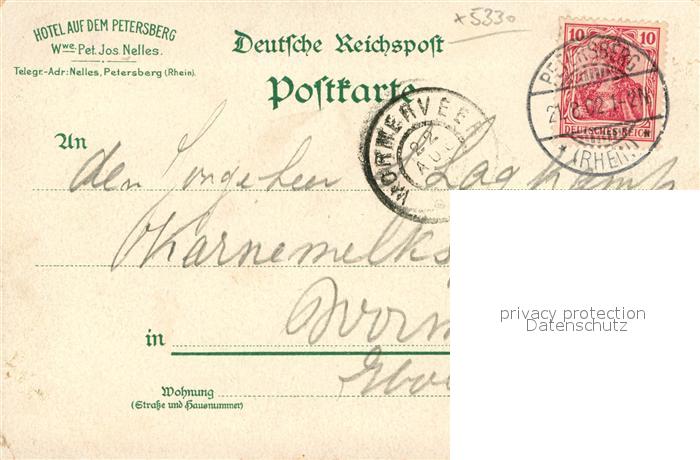 ×5330
HOTEL AUF DEM PETERSBERG
Wwe. Pet. Jos. Nelles.
Telegr.-Adr: Nelles, Petersberg (Rhein).
Deutsche Reichspost
Postkarte
10 10
DEUTSCHES REICH
PETERSBERG
(RHEIN)
WORMERVEER
22
AUG
An
den
Karnemelks
in
Worm
Wohnung
(Straße und Hausnummer)
privacy protection
Datenschutz